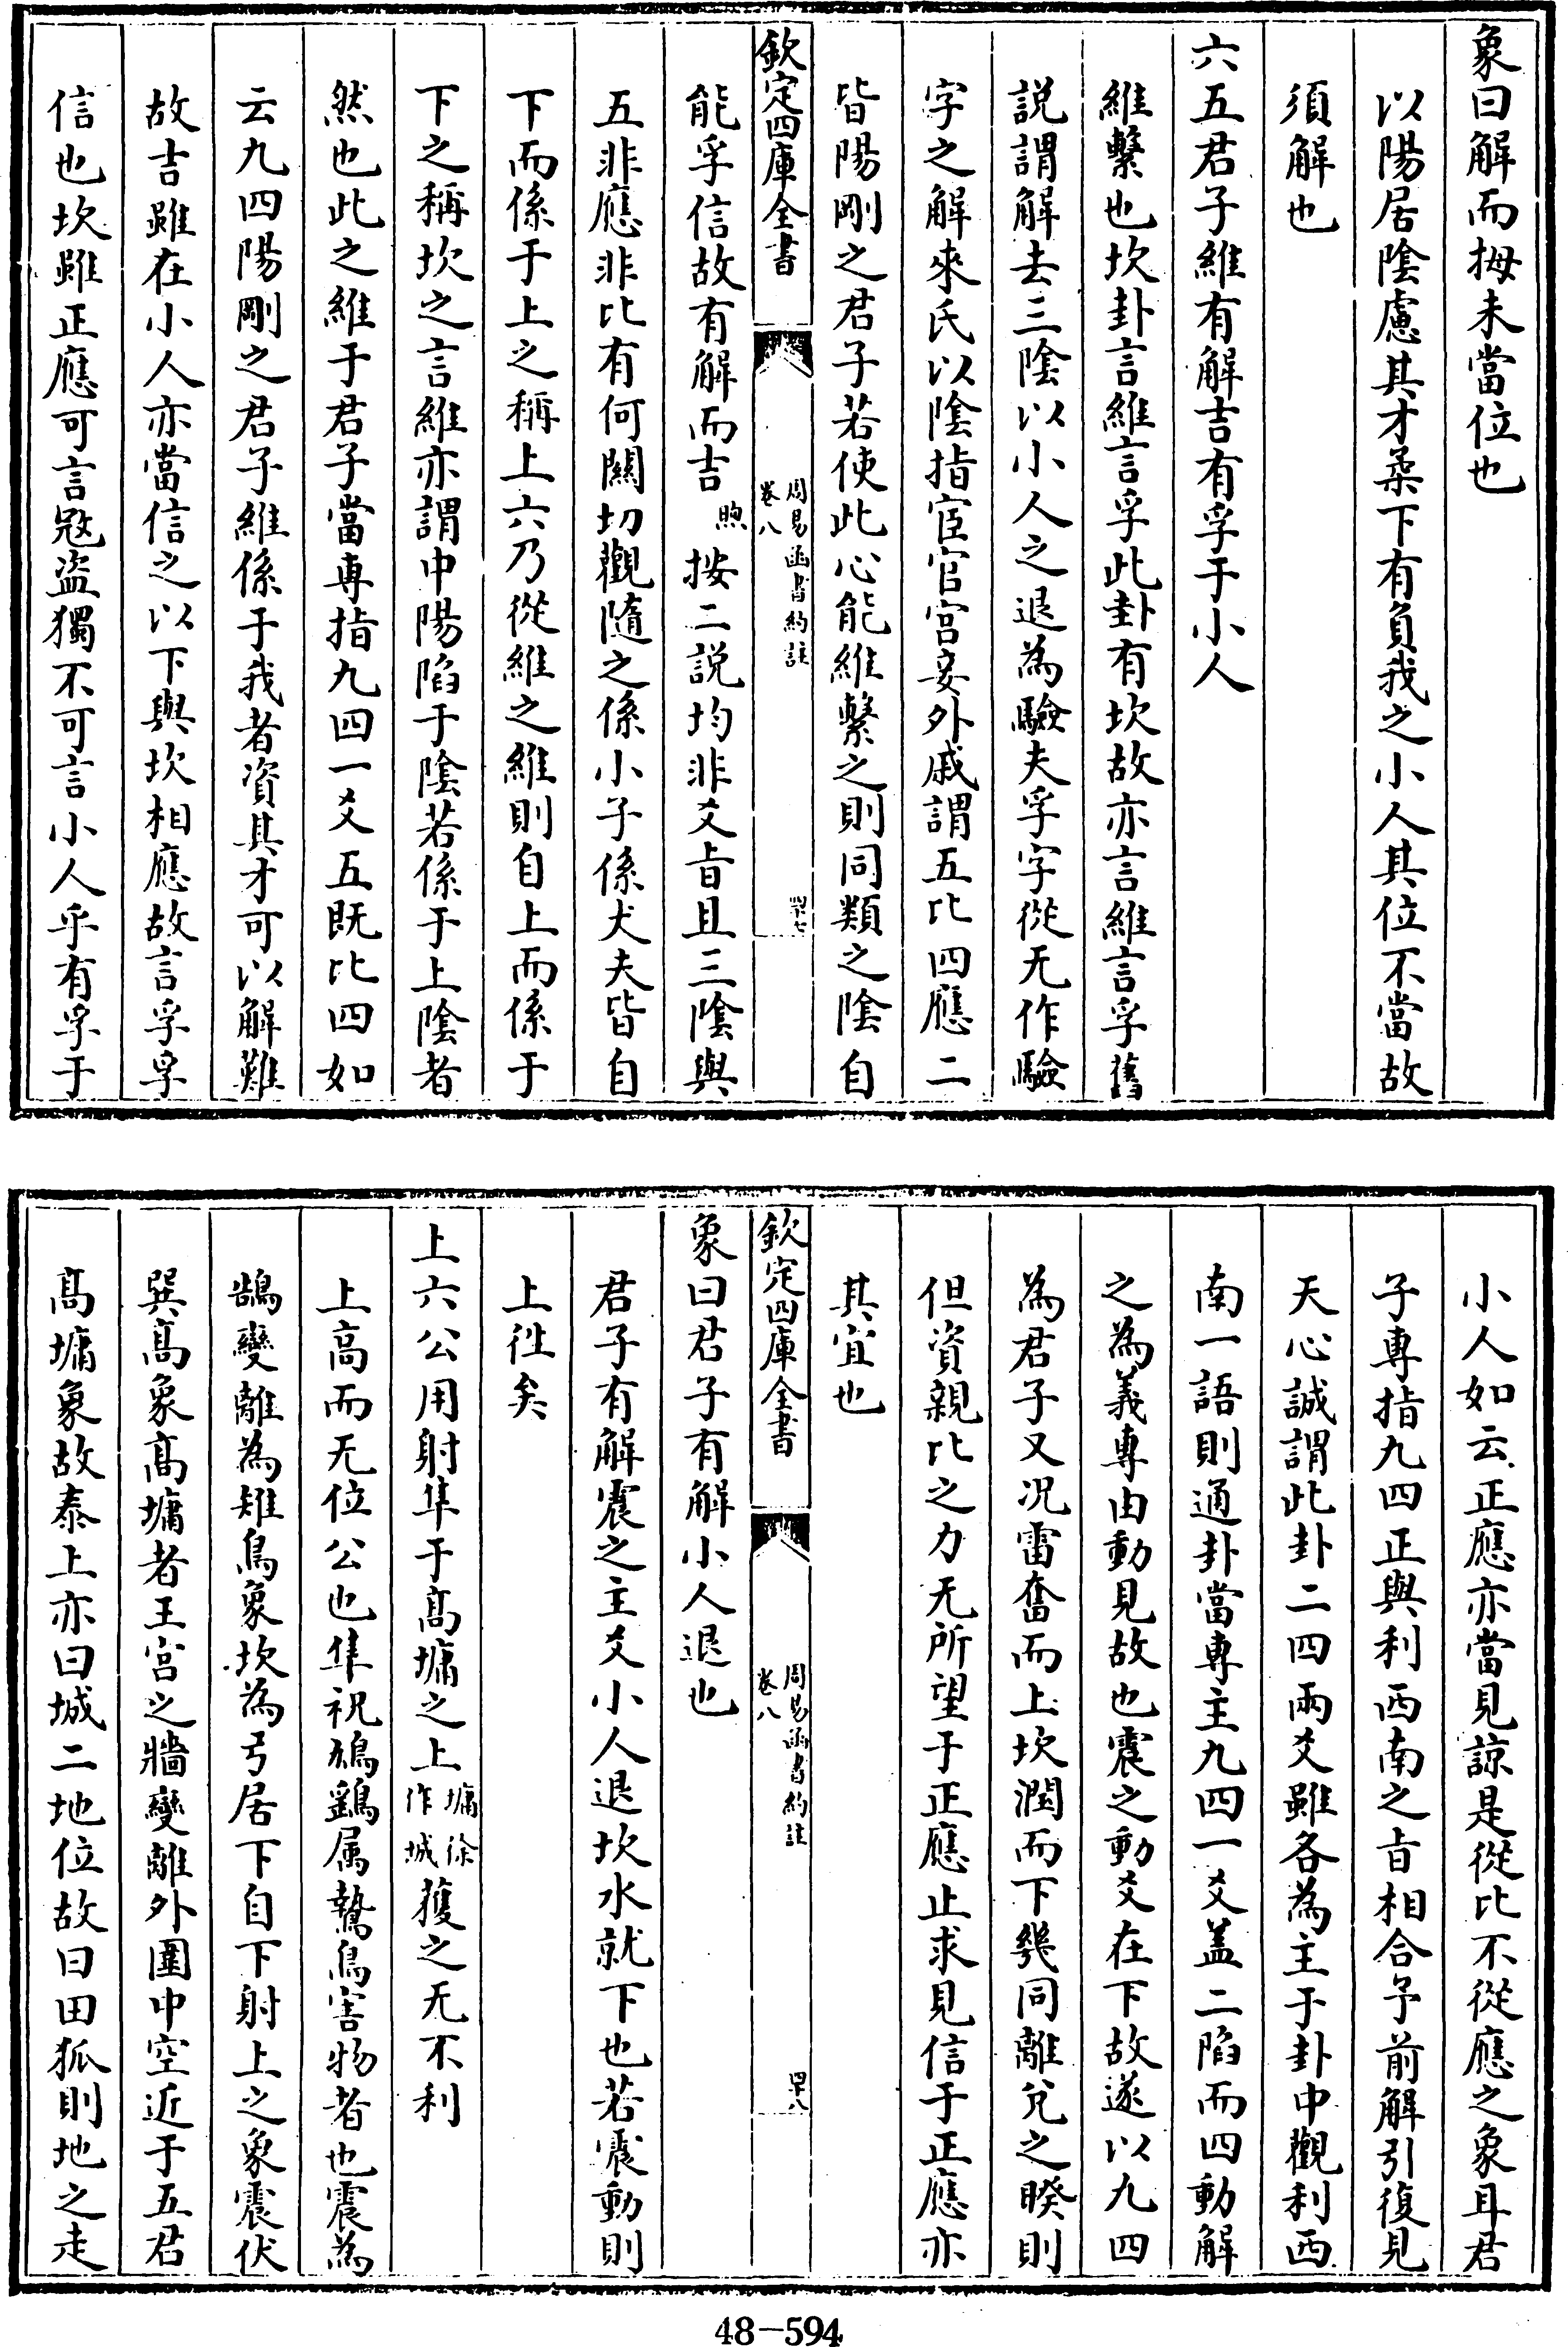 象曰解而拇未當位也
以陽居陰慮其才柔下有負我之小人其位不當故
須解也
六五君子維有解吉有孚于小人
維繫也坎卦言維言孚此卦有坎故亦言維言孚舊
説謂解去三陰以小人之退為驗夫孚字從无作驗
字之解來氏以陰指宦官宫妾外戚謂五比四應二
皆陽剛之君子若使此心能維繫之則同類之陰自
欽定四庫全書
周易函書約註
卷八
四十七
能孚信故有解而吉煦按二説均非爻旨且三陰與
五非應非比有何關切觀隨之係小子係丈夫皆自
下而係于上之稱上六乃從維之維則自上而係于
下之稱坎之言維亦謂中陽陷于陰若係于上陰者
然也此之維于君子當専指九四一爻五既比四如
云九四陽剛之君子維係于我者資其才可以解難
故吉雖在小人亦當信之以下與坎相應故言孚孚
信也坎雖正應可言冦盗獨不可言小人乎有孚于
小人如云正應亦當見諒是從比不從應之象耳君
子専指九四正與利西南之旨相合予前解引復見
天心誠謂此卦二四兩爻雖各為主于卦中觀利西
南一語則通卦當専主九四一爻盖二陷而四動解
之為義専由動見故也震之動爻在下故遂以九四
為君子又况雷奮而上坎潤而下幾同離兌之暌則
但資親比之力无所望于正應止求見信于正應亦
其宜也
欽定四庫全書
周易函書約註
卷八
四十八
象曰君子有解小人退也
君子有解震之主爻小人退坎水就下也若震動則
上徃矣
上六公用射隼于髙墉之上墉徐作城獲之无不利
上高而无位公也隼祝鳩鷂属鷙鳥害物者也震為
鵠變離為雉鳥象坎為弓居下自下射上之象震伏
巽髙象髙墉者王宫之牆變離外圍中空近于五君
髙墉象故泰上亦曰城二地位故曰田狐則地之走
48-594